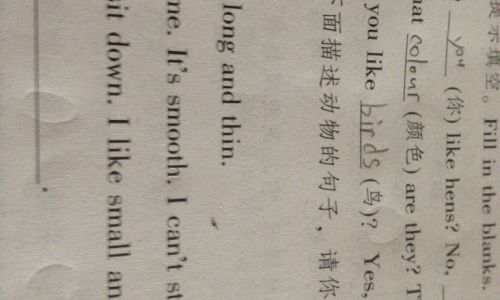 提示填空。Fill in the blanks.
you (你) like hens? No,
hat colour (颜色) are they? T
you like birds (鸟)? Yes,
下面描述动物的句子，请你
long and thin.
ne. It's smooth. I can't st
it down. I like small an
.